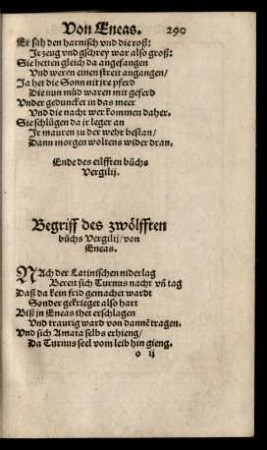 Von Eneas. 290
Er sih den harnisch vnd die roß:
Ir zeug vnd gschrey war also groß:
Sie hetten gleich da angefangen
Vnd weren einen streit angangen/
Ja het die Sonn nit jre pferd
Die nun müd waren mit geferd
Vnder geduncket in das meer
Vnd die nacht wer kommen daher.
Sie schlügen da jr leger an
Ir mauren zu der wehr bestan/
Dann morgen woltens wider dran.
Ende des eilfften büchs
Vergilij.
Begriff des zwölfften
büchs Vergilij/von
Eneas.
NAch der Latinischen niderlag
Bereit sich Turnus nacht vñ tag
Daß da kein frid gemachet wardt
Sonder gekrieget also hart
Biß in Eneas thet erschlagen
Vnd traurig ward von dannẽ tragen.
Vnd sich Amata selbs erhieng/
Da Turnus seel vom leib hin gieng.
o ij